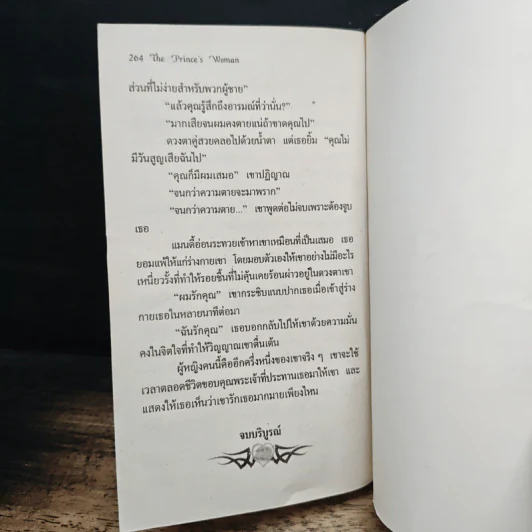 264 The Prince's Woman
ส่วนที่ไม่ง่ายสำหรับพวกผู้ชาย"
"แล้วคุณรู้สึกถึงอารมณ์ที่ว่านั่น?"
"มากเสียจนผมคงตายแน่ถ้าขาดคุณไป"
ดวงตาคู่สวยคลอไปด้วยน้ำตา แต่เธอยิ้ม "คุณไม่
มีวันสูญเสียฉันไป"
"คุณก็มีผมเสมอ" เขาปฏิญาณ
"จนกว่าความตายจะมาพราก"
"จนกว่าความตาย..." เขาพูดต่อไม่จบเพราะต้องจูบ
เธอ
แมนดี้อ่อนระทวยเข้าหาเขาเหมือนที่เป็นเสมอ เธอ
ยอมแพ้ให้แก่ร่างกายเขา โดยมอบตัวเองให้เขาอย่างไม่มีอะไร
เหนี่ยวรั้งที่ทำให้รอยชื้นที่ไม่คุ้นเคยร้อนผ่าวอยู่ในดวงตาเขา
"ผมรักคุณ" เขากระซิบแนบปากเธอเมื่อเข้าสู่ร่าง
กายเธอในหลายนาทีต่อมา
"ฉันรักคุณ" เธอบอกกลับไปให้เขาด้วยความมั่น
คงในจิตใจที่ทำให้วิญญาณเขาตื่นเต้น
ผู้หญิงคนนี้คืออีกครึ่งหนึ่งของเขาจริง ๆ เขาจะใช้
เวลาตลอดชีวิตขอบคุณพระเจ้าที่ประทานเธอมาให้เขา และ
แสดงให้เธอเห็นว่าเขารักเธอมากมายเพียงไหน
จบบริบูรณ์